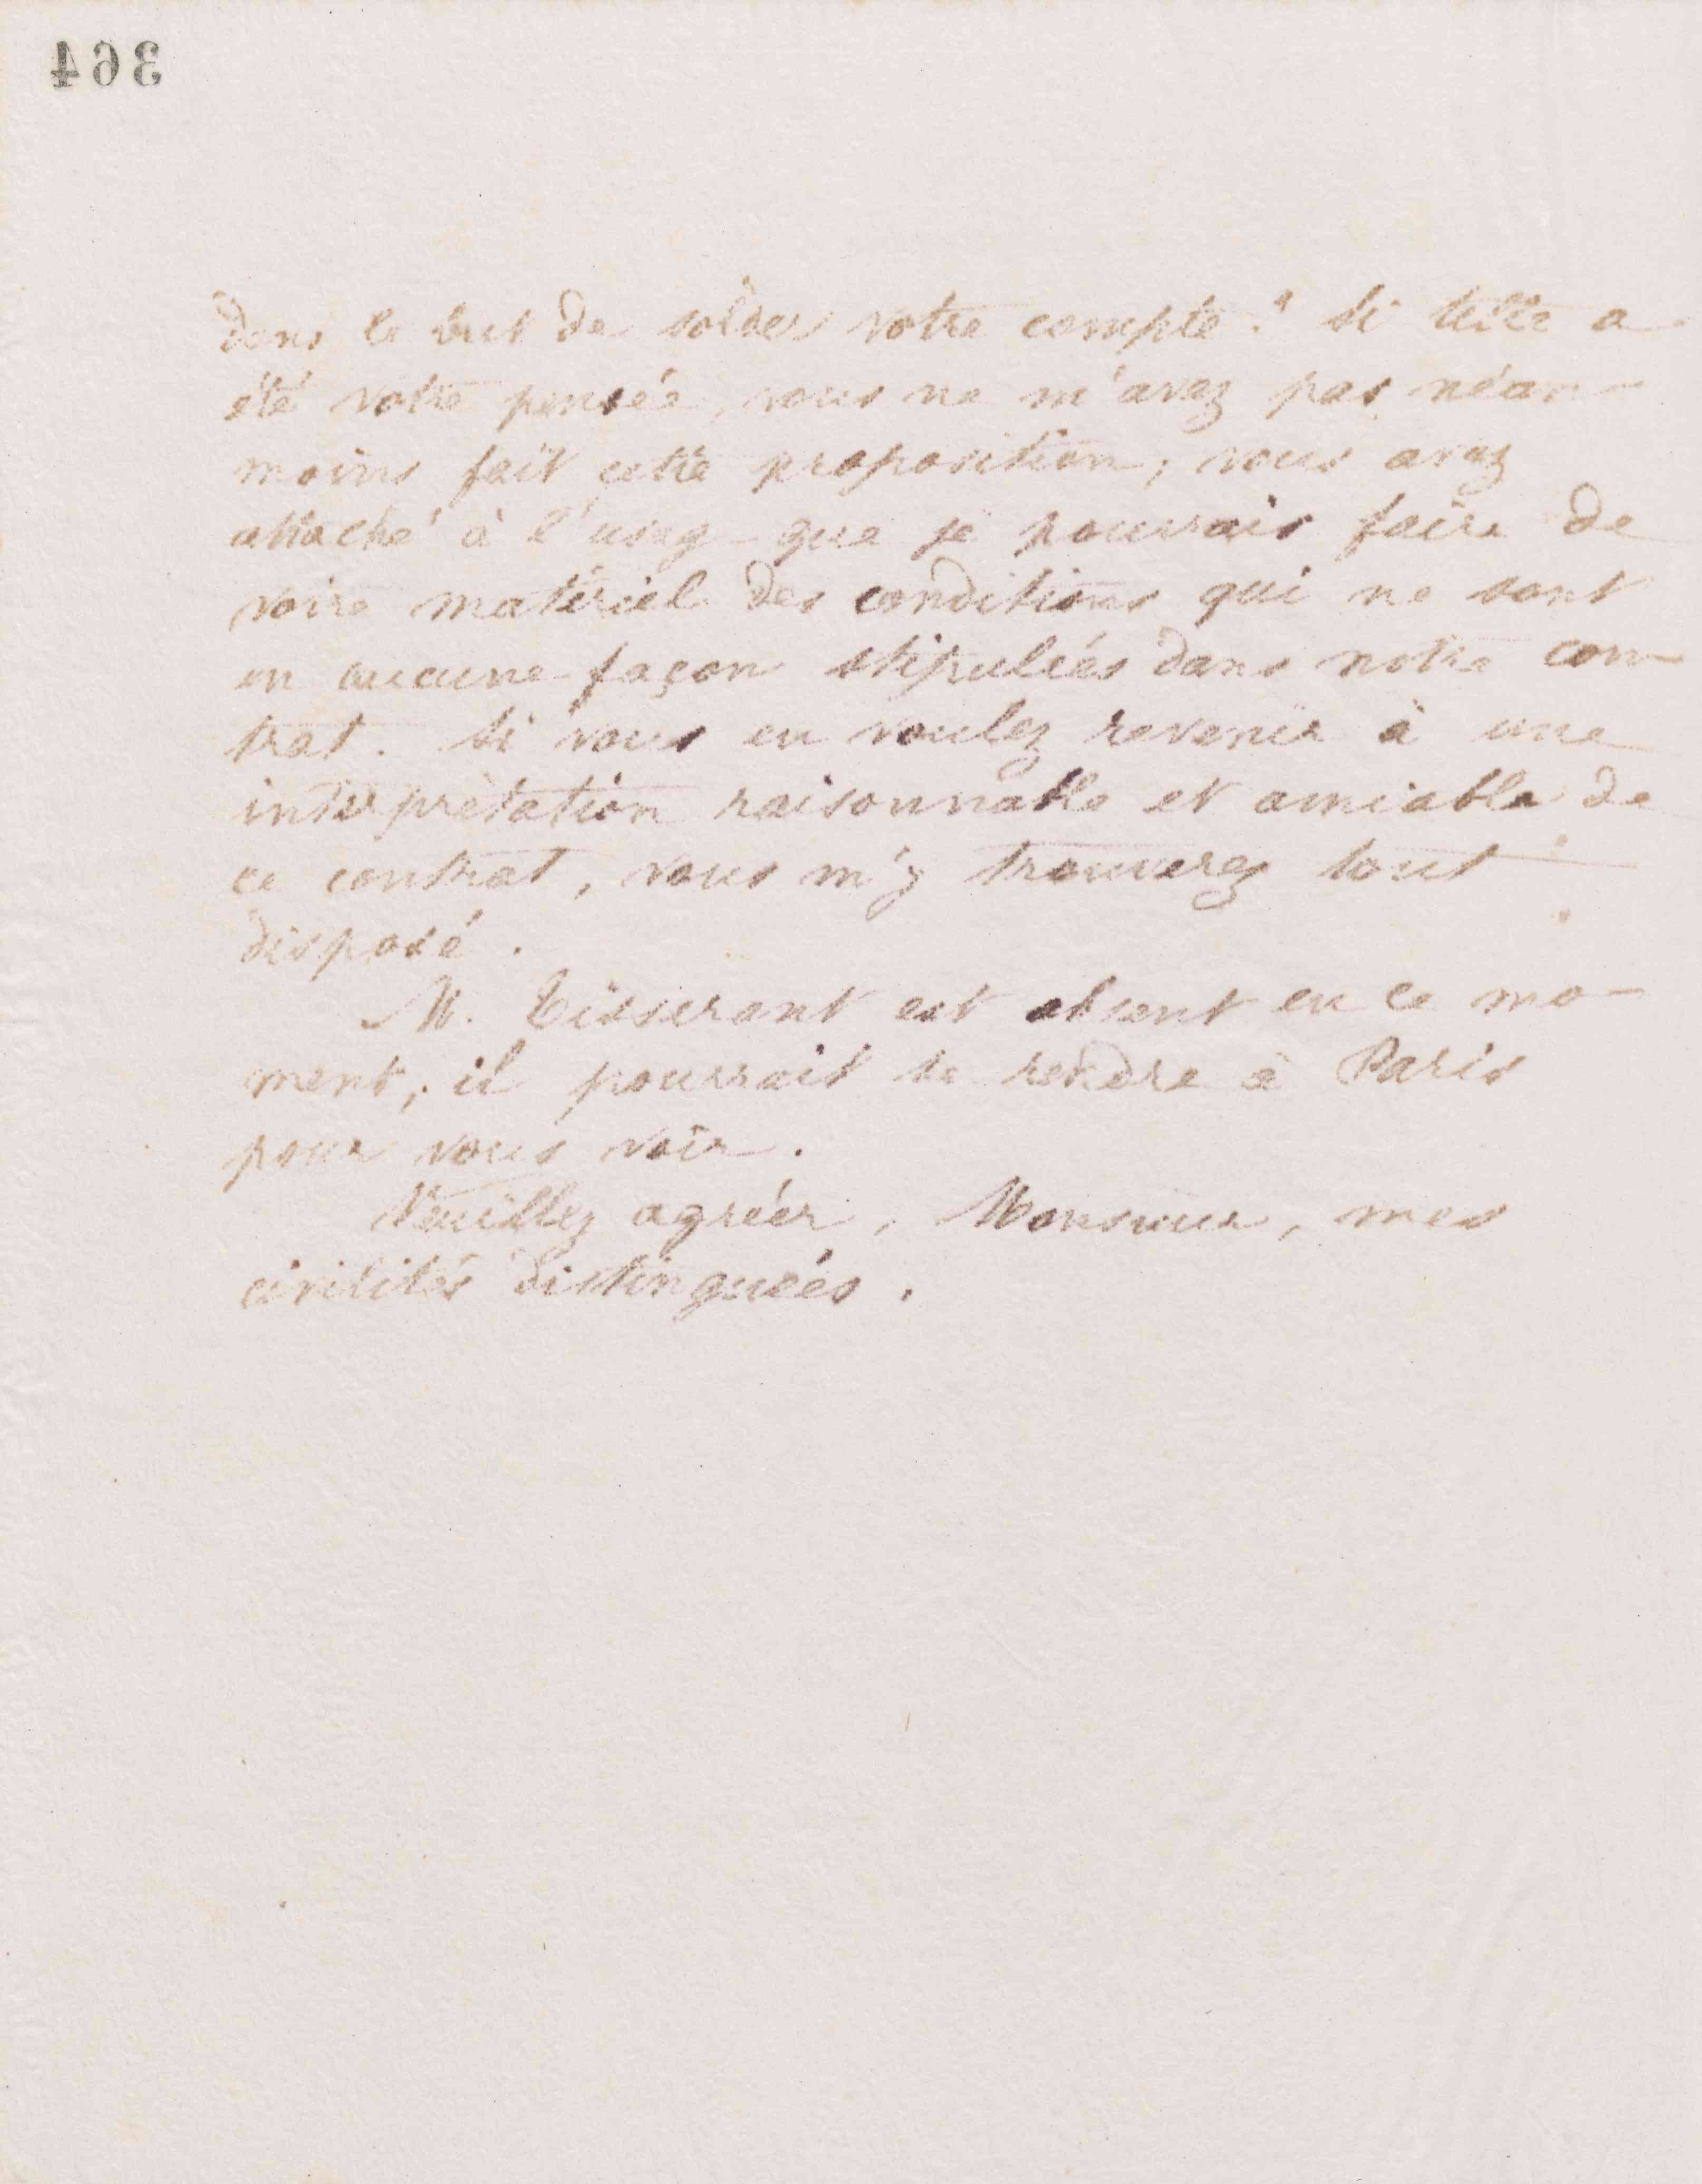 364
dans le but de solder votre compte." Si telle a
été votre pensée, vous ne m'avez pas néan-
moins fait cette proposition; vous avez
attaché à l'usage que je pourrais faire de
votre matériel des conditions qui ne sont
en aucune façon stipulées dans notre con-
trat. Si vous en voulez revenir à une
interprètation raisonnable et amiable de
ce contrat, vous m'y trouverez tout
disposé.
M. Tisserant est absent en ce mo-
ment; il pourrait se rendre à Paris
pour vous voir.
Veuillez agréer, Monsieur, mes
civilités distinguées.